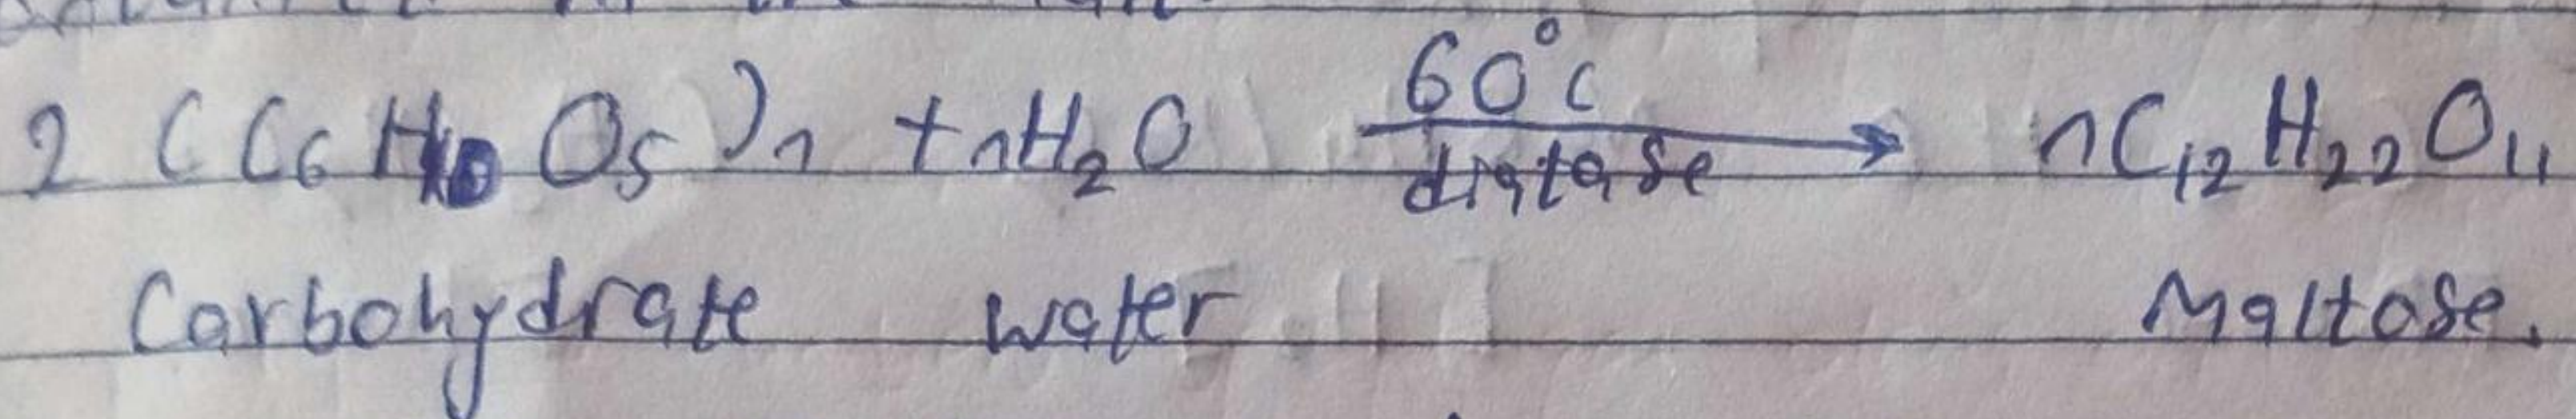 2 (C6H10O5)n + nH2O 60°c diatase → nC12H22O11
Carbohydrate water Maltose.